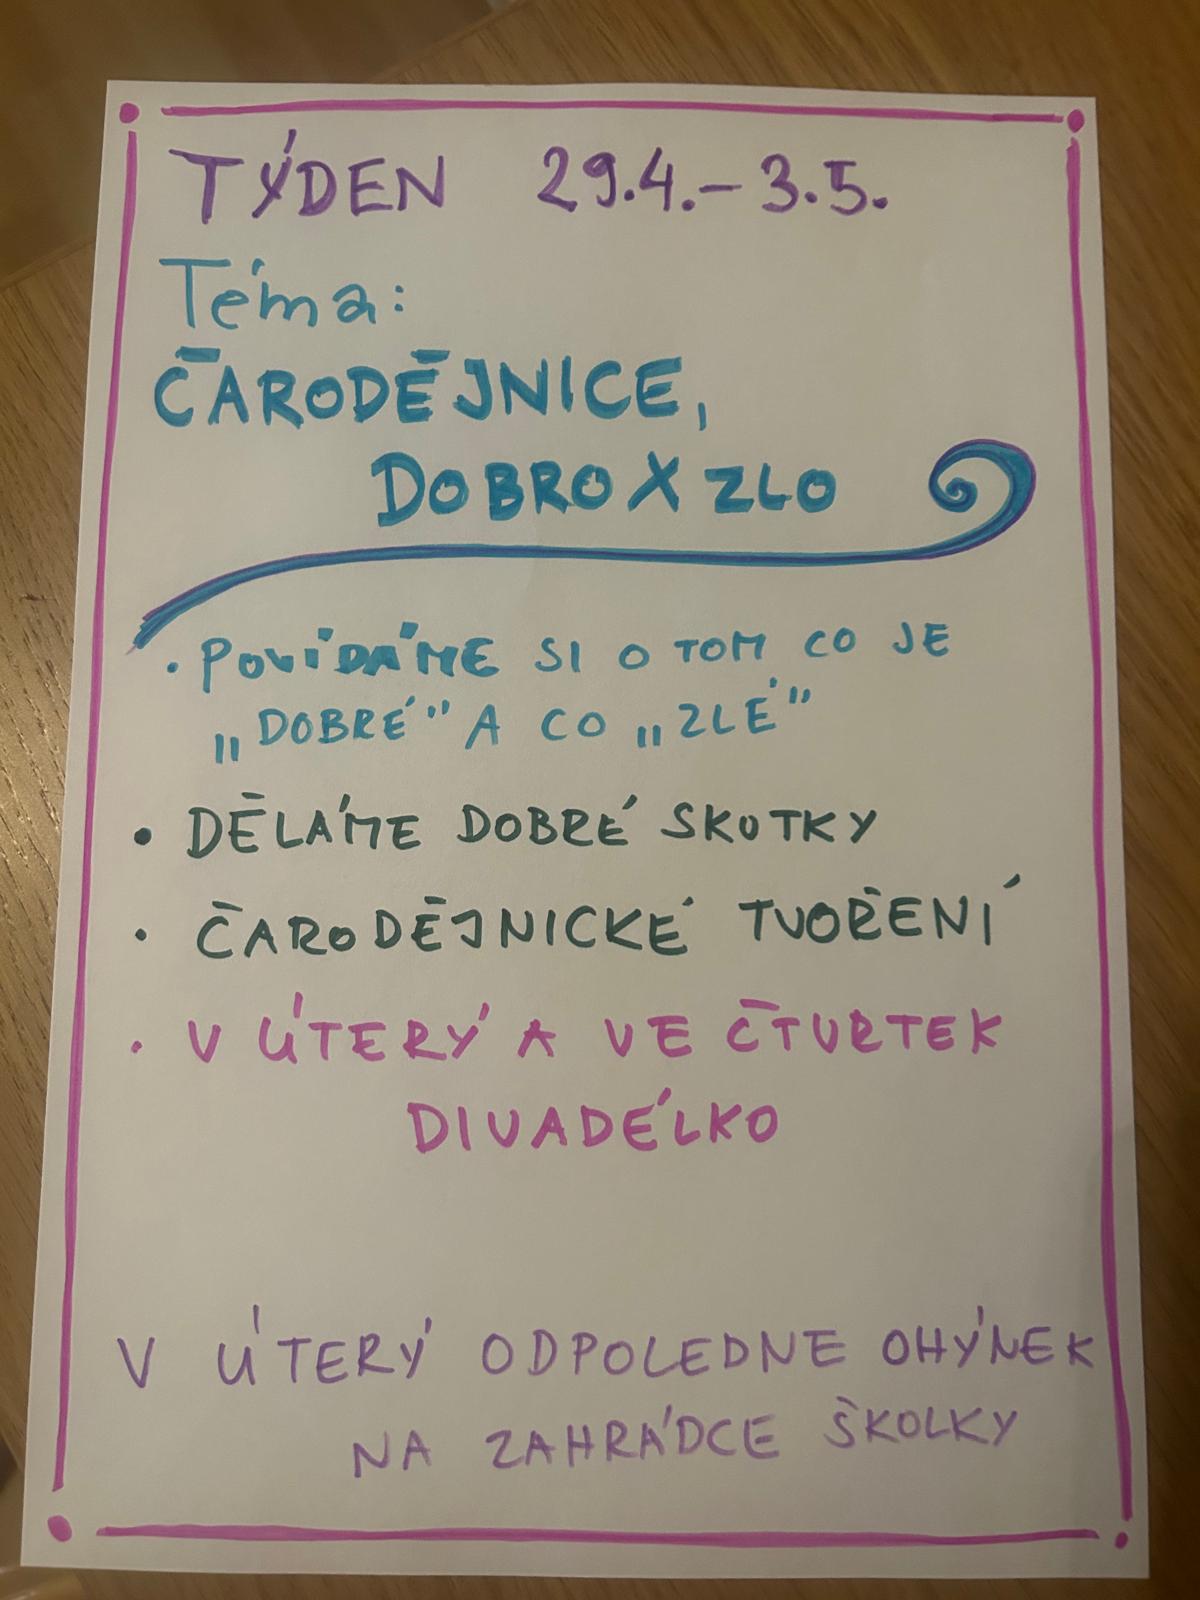 TÝDEN 29.4.-3.5.
Téma:
ČARODĚJNICE,
DOBRO X ZLO
· POVÍDÁME SI O TOM CO JE
„DOBRÉ" A CO „ZLÉ"
• DĚLÁME DOBRÉ SKUTKY
· ČARODĚJNICKÉ TVOŘENÍ
· V ÚTERÝ A VE ČTVRTEK
DIVADÉLKO
V ÚTERÝ ODPOLEDNE OHÝNEK
NA ZAHRÁDCE ŠKOLKY